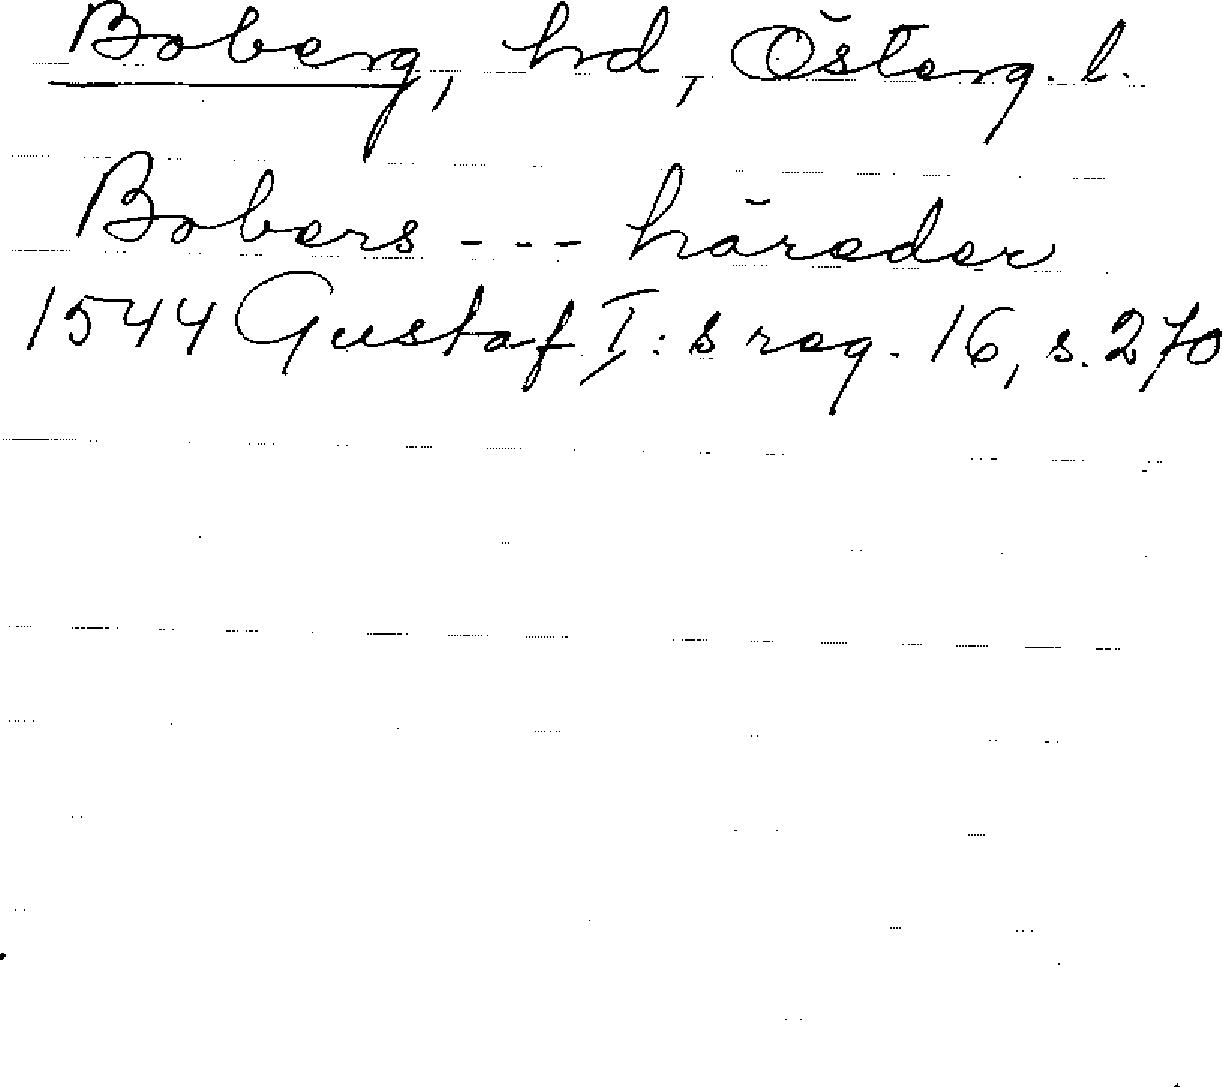 Boberg, hd, Österg. l.
Bobers - - - häreder
1544 Gustaf I:s reg. 16, s. 270